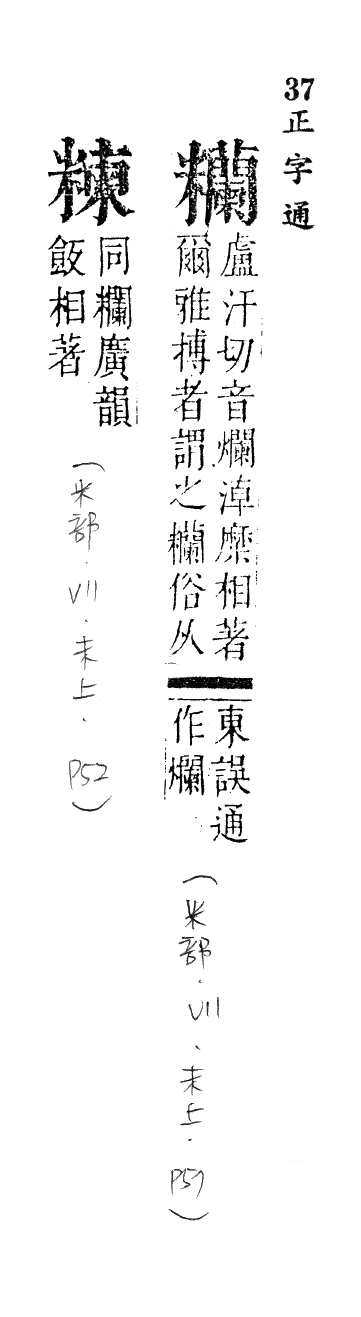 37正字通
糷
盧汗切音爛淖糜相著
爾雅摶者謂之糷俗从
東誤通
作爛
(米部.VII.未上.P57)
𥻂
同糷廣韻
飯相著
(米部.VII.未上.P52)